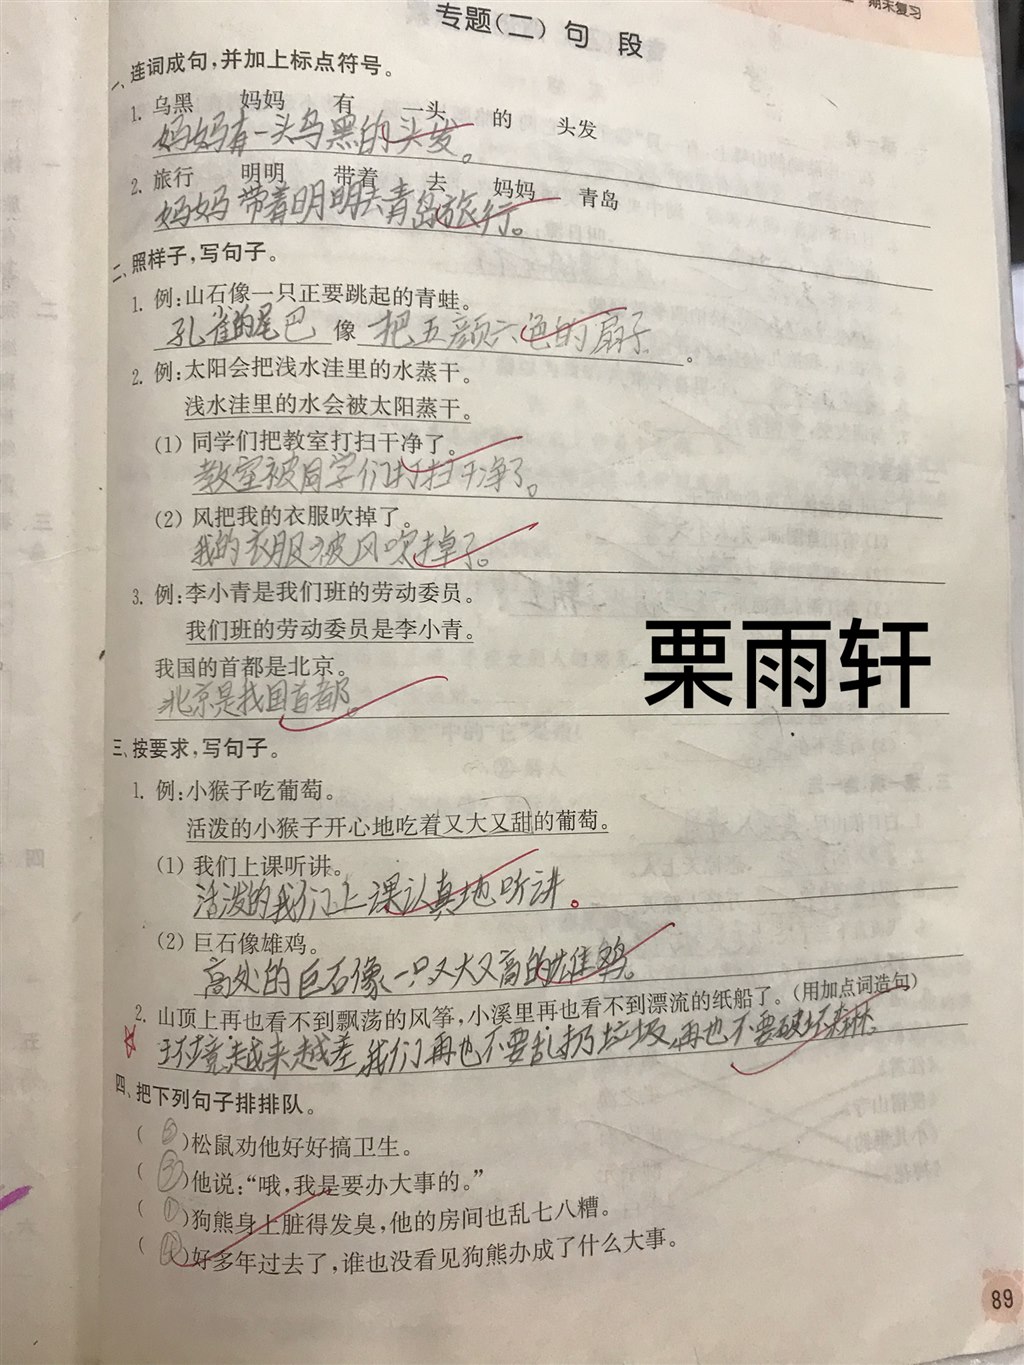 期末复习
专题(二) 句 段
一、连词成句,并加上标点符号。
1. 乌黑 妈妈 有 一头 的 头发
妈妈有一头乌黑的头发。
2. 旅行 明明 带着 去 妈妈 青岛
妈妈带着明明去青岛旅行。
二、照样子,写句子。
1. 例:山石像一只正要跳起的青蛙。
孔雀的尾巴 像 把五颜六色的扇子。
2. 例:太阳会把浅水洼里的水蒸干。
浅水洼里的水会被太阳蒸干。
(1) 同学们把教室打扫干净了。
教室被同学们打扫干净了。
(2) 风把我的衣服吹掉了。
我的衣服被风吹掉了。
3. 例:李小青是我们班的劳动委员。
我们班的劳动委员是李小青。
栗雨轩
我国的首都是北京。
北京是我国首都。
三、按要求,写句子。
1. 例:小猴子吃葡萄。
活泼的小猴子开心地吃着又大又甜的葡萄。
(1) 我们上课听讲。
活泼的我们上课认真地听讲。
(2) 巨石像雄鸡。
高处的巨石像一只又大又高的雄鸡。
2. 山顶上再也看不到飘荡的风筝,小溪里再也看不到漂流的纸船了。(用加点词造句)
环境越来越差,我们再也不要乱扔垃圾,再也不要破坏森林。
四、把下列句子排排队。
(③)松鼠劝他好好搞卫生。
(②)他说:“哦,我是要办大事的。”
(①)狗熊身上脏得发臭,他的房间也乱七八糟。
(④)好多年过去了,谁也没看见狗熊办成了什么大事。
89